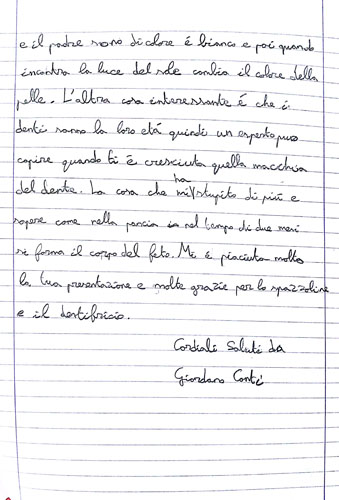 e il padre sono di colore è bianco e poi quando
incontra la luce del sole cambia il colore della
pelle. L'altra cosa interessante è che i
denti sanno la loro età quindi un esperto può
capire quando ti è cresciuta quella macchia
del dente. La cosa che mi ha stupito di più è
sapere come nella pancia in nel tempo di due mesi
si forma il corpo del feto. Mi è piaciuta molto
la tua presentazione e molte grazie per lo spazzolino
e il dentifricio.
Cordiali Saluti da
Giordano Conti